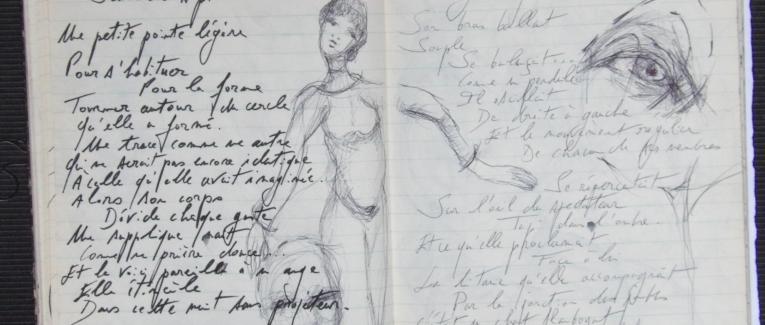 Une petite pointe légère
Pour s'habituer
Pour la forme
Tourner autour du cercle
qu'elle a formé.
Une trace comme une autre
qui ne serait pas encore identique
A celle qu'elle avait imaginée...
Alors son corps
Dévide chaque goutte
Une supplique
Comme une prière
Et le voici pareille à un ange
Elle
Dans cette nuit sans projecteur.
Son bras ballat
Souple
Se balançat
Comme un pendule
Il oscillat
De droite à gauche
Et le mouvement régulier
De chacun de ses membres
Se répercutait
Sur l'œil du spectateur
Tapi dans l'ombre.
Et ce qu'elle proclamait
Face à lui
La litanie qu'elle accompagnait
Par la